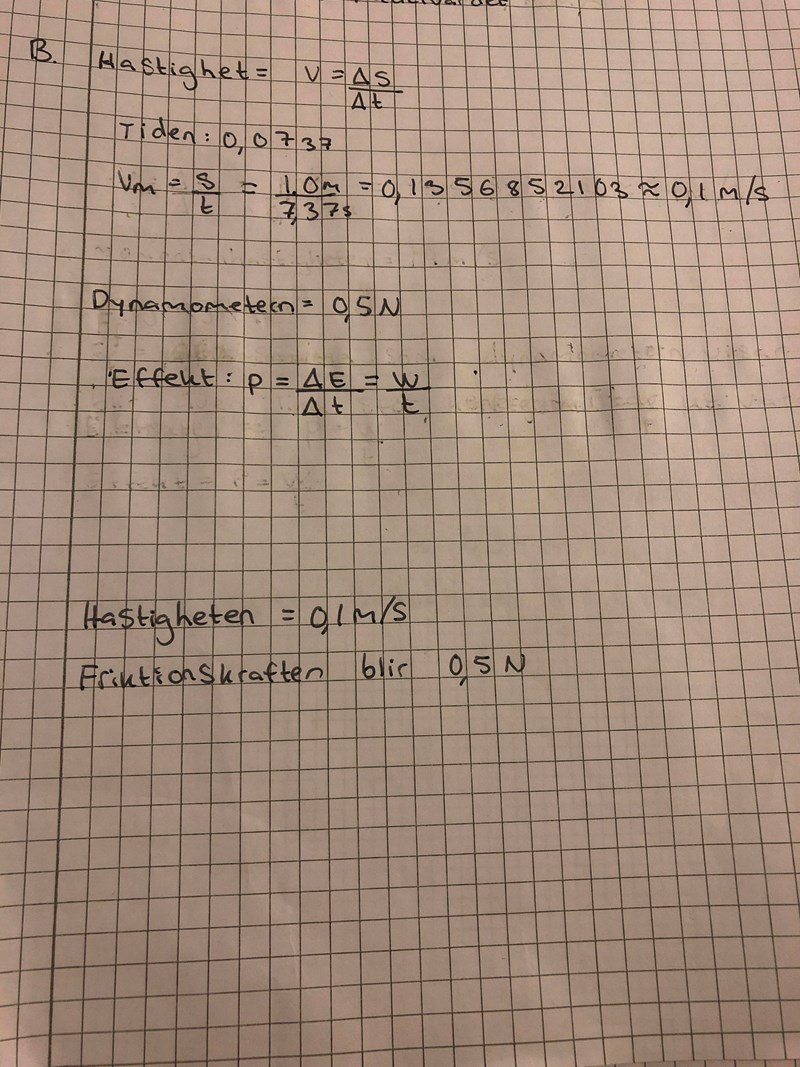 B. Hastighet = v = Δs/Δt
Tiden: 0,0737
Vm = s/t = 1,0m/7,37s = 0,1356852103 ≈ 0,1 m/s
Dynamometern = 0,5 N
Effekt: p = ΔE/Δt = W/t
Hastigheten = 0,1 m/s
Friktionskraften blir 0,5 N